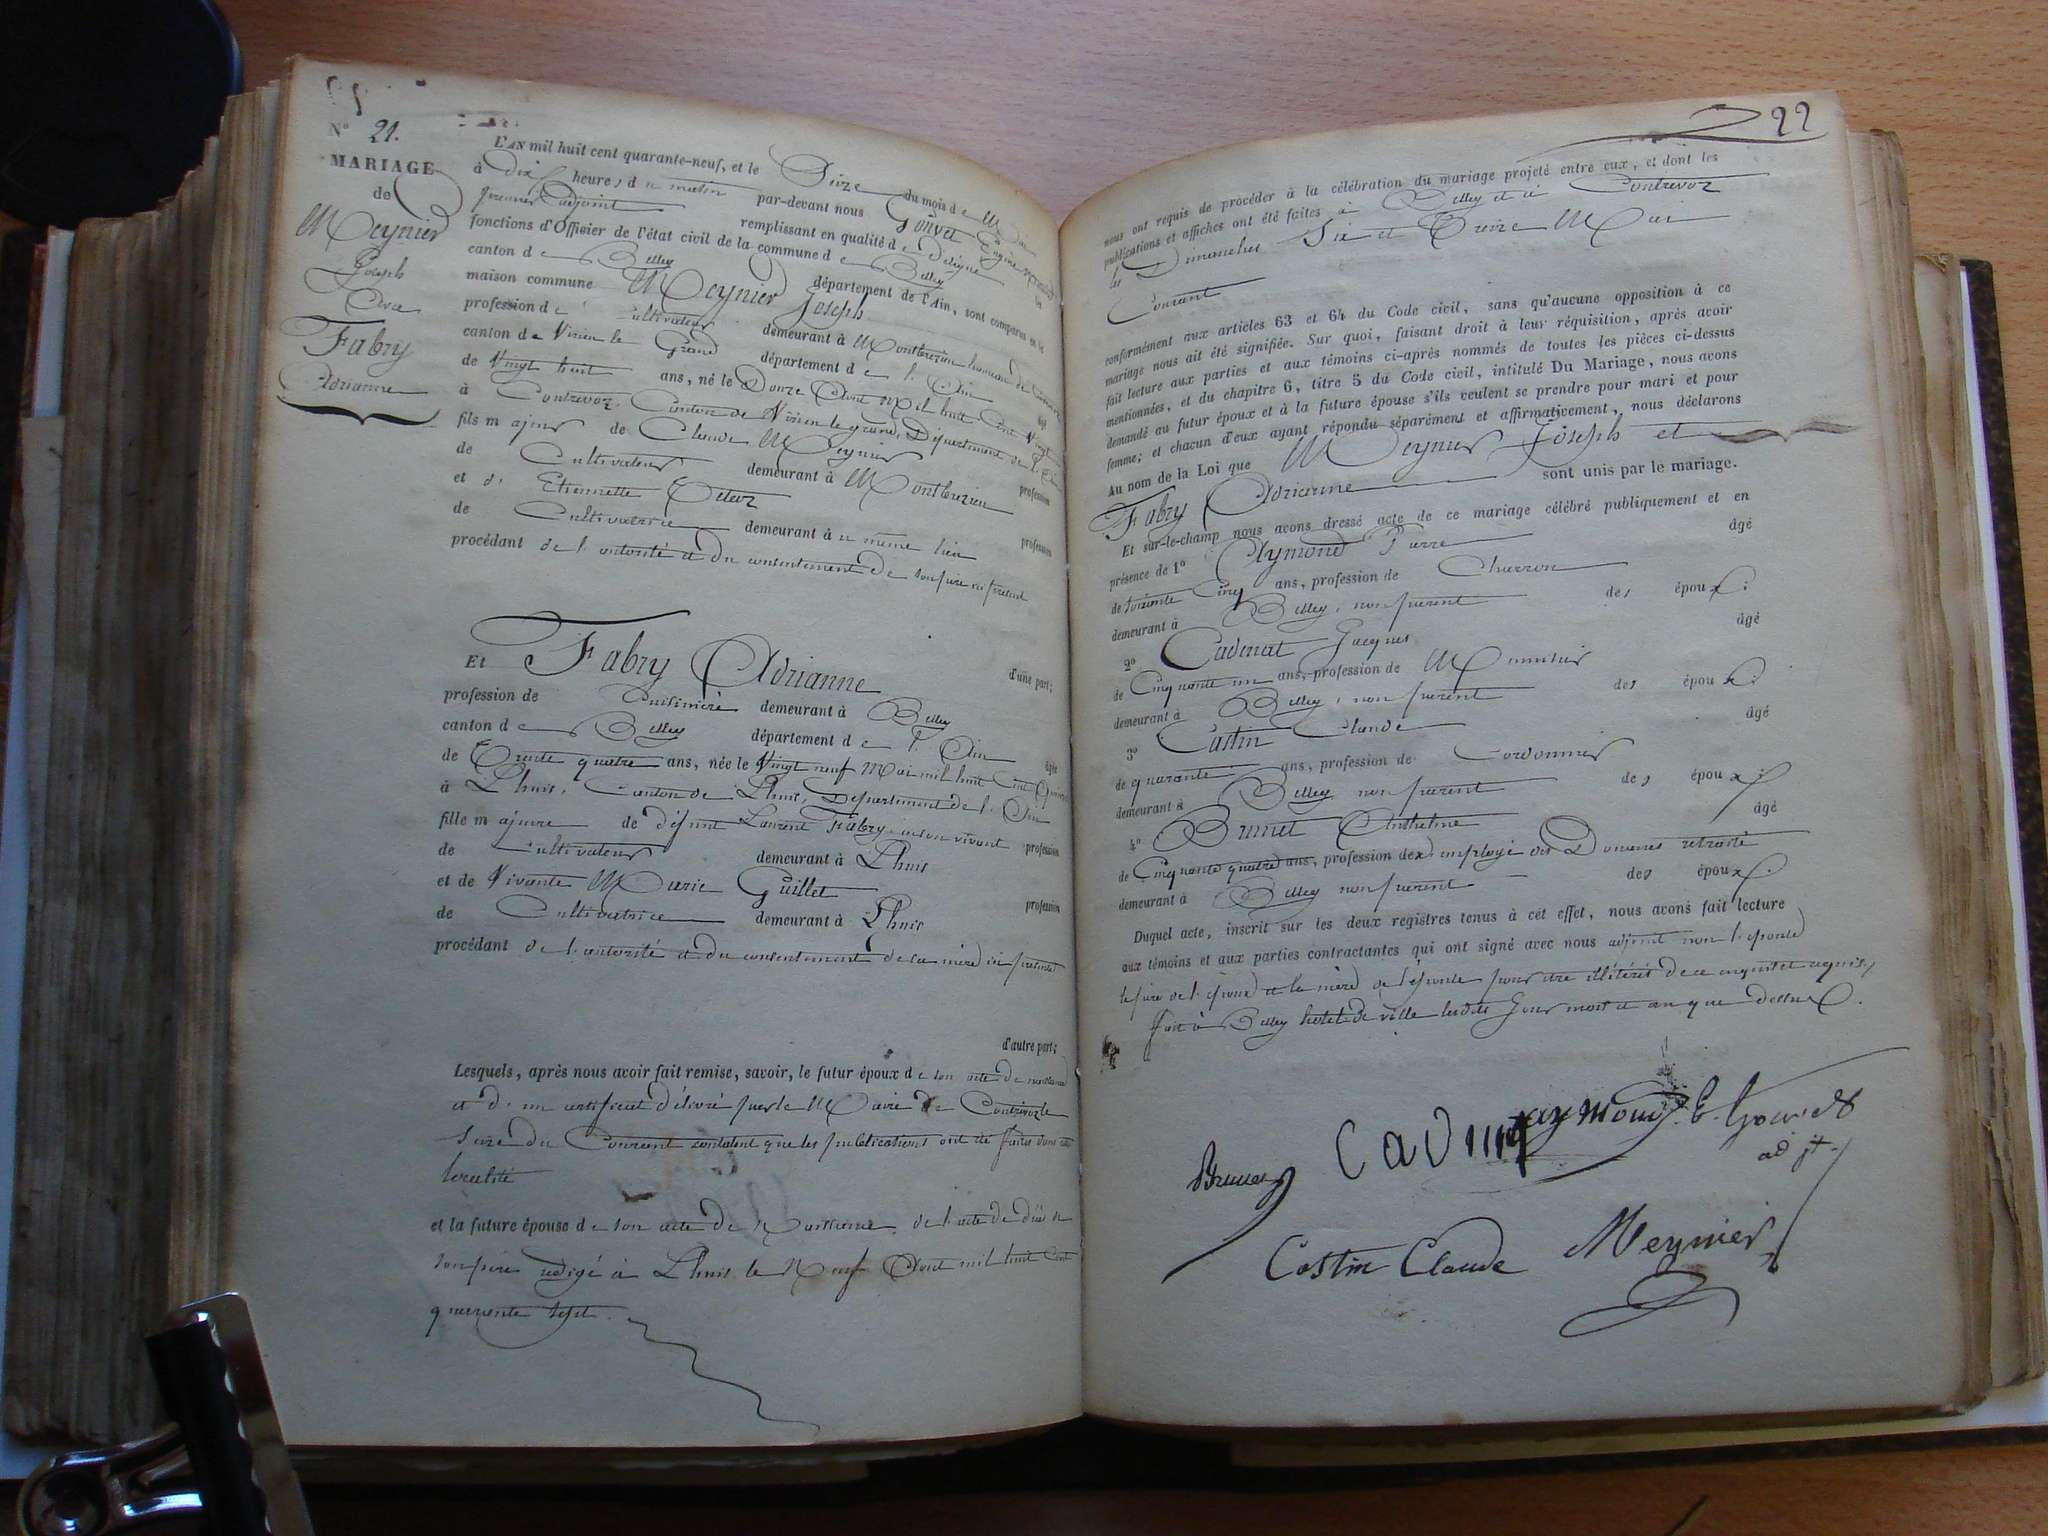 N° 21.
MARIAGE
de
Meynier
Joseph
Avec
Fabry
Adrianne
L'AN mil huit cent quarante-neuf, et le Seize du mois de Mai
à dix heures du matin par-devant nous Gouvet Eugène
premier adjoint remplissant en qualité de délégué les
fonctions d'Officier de l'état civil de la commune de Belley
canton de Belley département de l'Ain, sont comparus en la
maison commune Meynier Joseph
profession de Cultivateur demeurant à Montbrezieu hameau de
canton de Virieu le Grand département de l'Ain âgé
de Vingt huit ans, né le Douze Avril Mil huit Cent Vingt
à Contrevoz, Canton de Virieu le grand, Département de l'Ain
fils majeur de Claude Meynier profession
de Cultivateur demeurant à Montbrezieu
et d' Etiennette profession
de Cultivatrice demeurant à u même lieu
procédant de l'autorité et du consentement de son père ici présent
d'une part;
Et Fabry Adrianne
profession de Cuisinière demeurant à Belley
canton de Belley département de l'Ain âgée
de Trente quatre ans, née le Vingt neuf Mai mil huit Cent Quinze
à Lhuis, Canton de Lhuis, Département de l'Ain
fille majeure de défunt Laurent Fabry, en son vivant profession
de Cultivateur demeurant à Lhuis
et de Vivante Marie Guillet profession
de Cultivatrice demeurant à Lhuis
procédant de l'autorité et du consentement de sa mère ici présente
d'autre part;
Lesquels, après nous avoir fait remise, savoir, le futur époux de son acte de naissance
et d'un certificat délivré par le Maire de Contrevoz le
Seize du Courant constatant que les publications ont été faites dans cette
localité
et la future épouse de son acte de Naissance, de l'acte de décès de
son père rédigé à Lhuis le Neuf Août mil huit Cent
quarante sept.
22
nous ont requis de procéder à la célébration du mariage projeté entre eux, et dont les
publications et affiches ont été faites à Belley et à Contrevoz
les Dimanches Six et Treize Mai
Courant
conformément aux articles 63 et 64 du Code civil, sans qu'aucune opposition à ce
mariage nous ait été signifiée. Sur quoi, faisant droit à leur réquisition, après avoir
fait lecture aux parties et aux témoins ci-après nommés de toutes les pièces ci-dessus
mentionnées, et du chapitre 6, titre 5 du Code civil, intitulé Du Mariage, nous avons
demandé au futur époux et à la future épouse s'ils veulent se prendre pour mari et pour
femme; et chacun d'eux ayant répondu séparément et affirmativement, nous déclarons
Au nom de la Loi que Meynier Joseph et
Fabry Adrianne sont unis par le mariage.
Et sur-le-champ nous avons dressé acte de ce mariage célébré publiquement et en
présence de 1° Aymond Pierre âgé
de soixante Cinq ans, profession de Charron
demeurant à Belley, non parent des époux.
2° Cadinat Jacques âgé
de Cinquante un ans, profession de Menuisier
demeurant à Belley, non parent des époux.
3° Castin Claude âgé
de quarante ans, profession de Cordonnier
demeurant à Belley, non parent des époux.
4° Brunet Anthelme âgé
de Cinquante quatre ans, profession d'employé des Douanes retraité
demeurant à Belley non parent des époux.
Duquel acte, inscrit sur les deux registres tenus à cet effet, nous avons fait lecture
aux témoins et aux parties contractantes qui ont signé avec nous adjoint non l'épouse
le père de l'époux et la mère de l'épouse pour être illétérés de ce enquis et requis,
fait à Belley hotel de ville lesdits Jour mois et an que dessus.
Brunet Cadinat aymond E. Gouvet
adjt.
Castin Claude Meynier